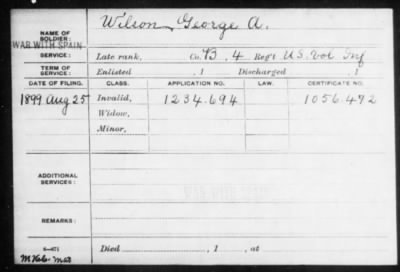 Wilson, George A.
NAME OF
SOLDIER:
WAR WITH SPAIN
SERVICE: Late rank, Co. B, 4 Reg't U.S. Vol Inf
TERM OF
SERVICE: Enlisted , 1 Discharged , 1
DATE OF FILING. CLASS. APPLICATION NO. LAW. CERTIFICATE NO.
1899 Aug 25 Invalid, 1234.694 1056.472
Widow,
Minor,
ADDITIONAL
SERVICES:
WAR WITH SPAIN
REMARKS:
Died , 1 , at